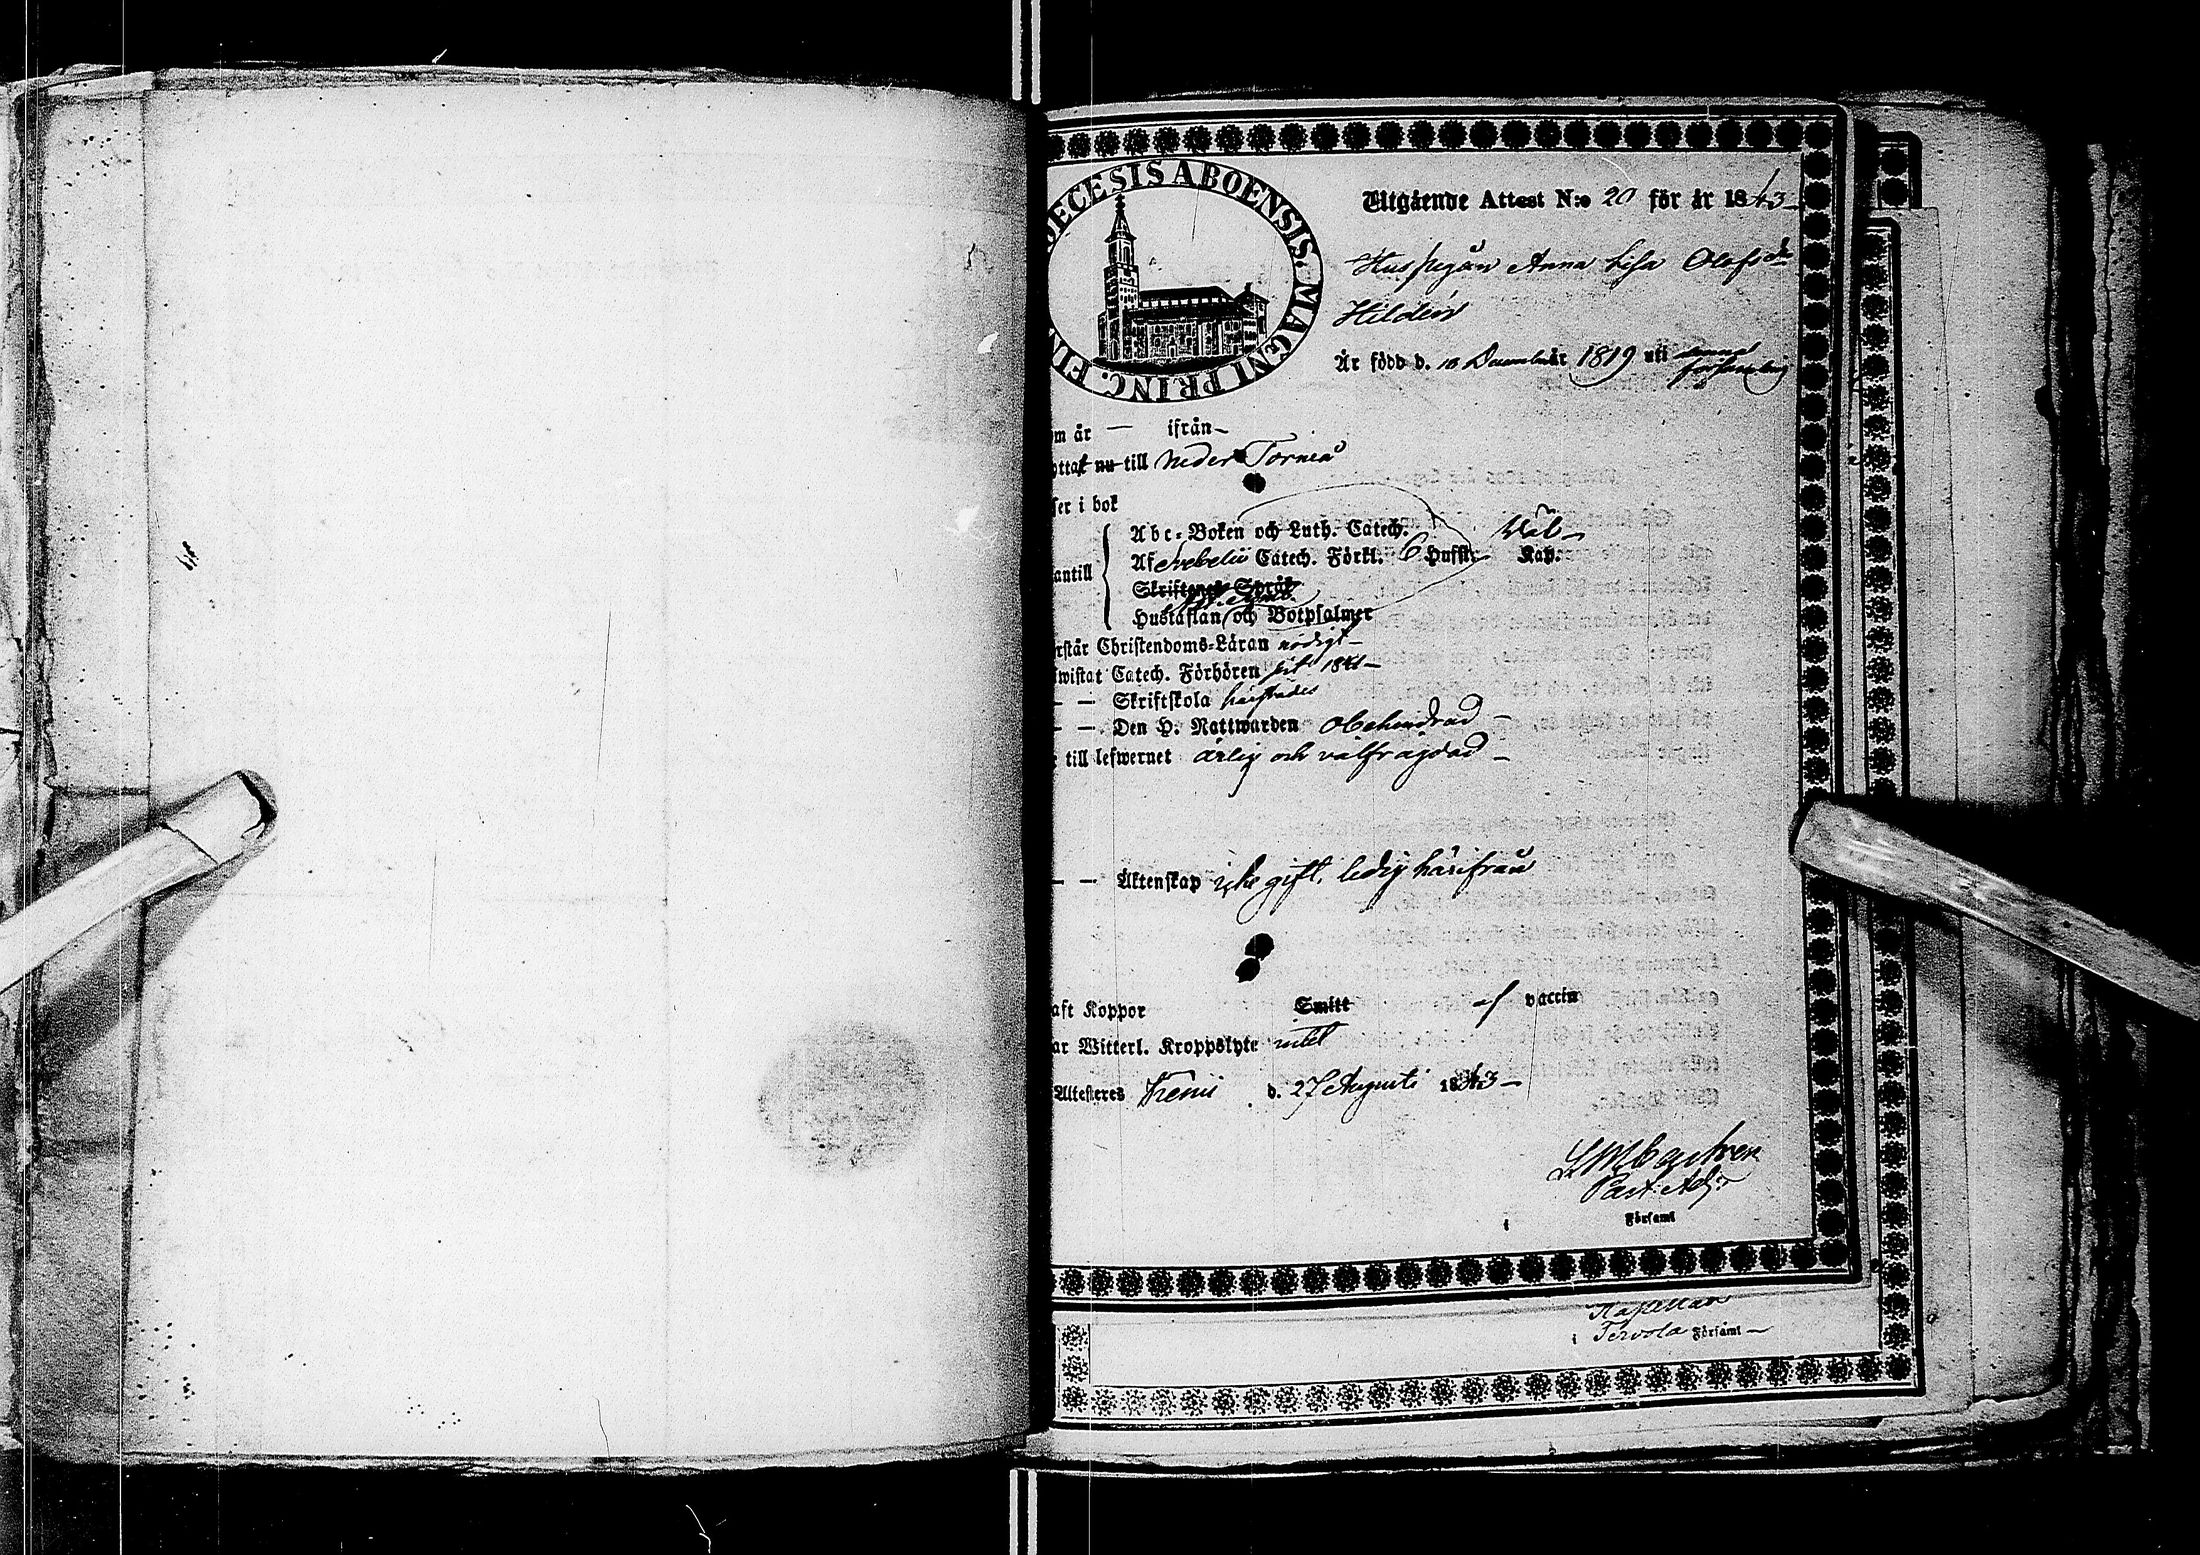 DIOECESIS ABOENSIS. MAGNI PRINC. FIN
Utgående Attest N:o 20 för år 1843
Huspigan Anna Lisa Olofsdr
Hildén
Är född d. 10 December 1819 uti annan församling
om år — ifrån
yttat nu till Neder Torneå
ser i bok
antill
Abc-Boken och Luth. Catech. Väl
Af Svebelii Catech. Förkl. 6 Hufst. Kap.
Skriftenes Språk
Hustaflan och Botpsalmer
rstår Christendoms-Läran nödigt
iwistat Catech. Förhören
— — Skriftskola
— — Den H. Nattwarden obehindrad
till lefwernet ärlig och välfrägdad
— — Äktenskap icke gift, ledig härifrån
aft Koppor Smitt af vaccin
ar Witterl. Kroppslyte intet
Attesteres Kemi d. 27 Augusti 1843
Past. Adj.
i Församl
Kapellan
i Tervola Församl